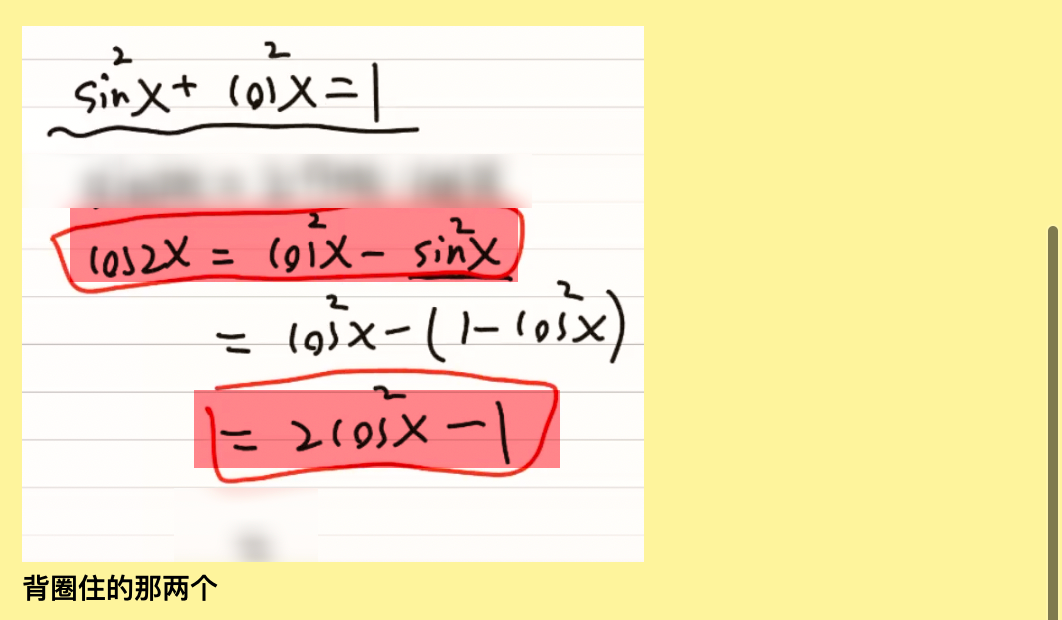 sin²x + cos²x = 1
cos2x = cos²x - sin²x
= cos²x - (1 - cos²x)
= 2cos²x - 1
背圈住的那两个